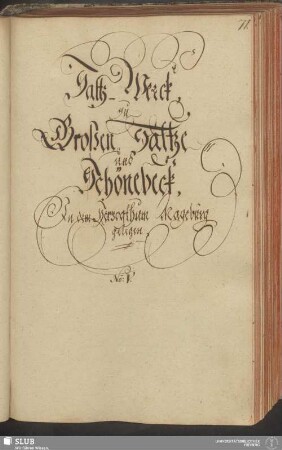 71.
Saltz-Werck
zu
Großen Saltze
und
Schönebeck,
In dem Hertzogthum Mageburg
gelegen.
No: V.
SLUB
Wir führen Wissen.
UNIVERSITÄTSBIBLIOTHEK
FREIBERG